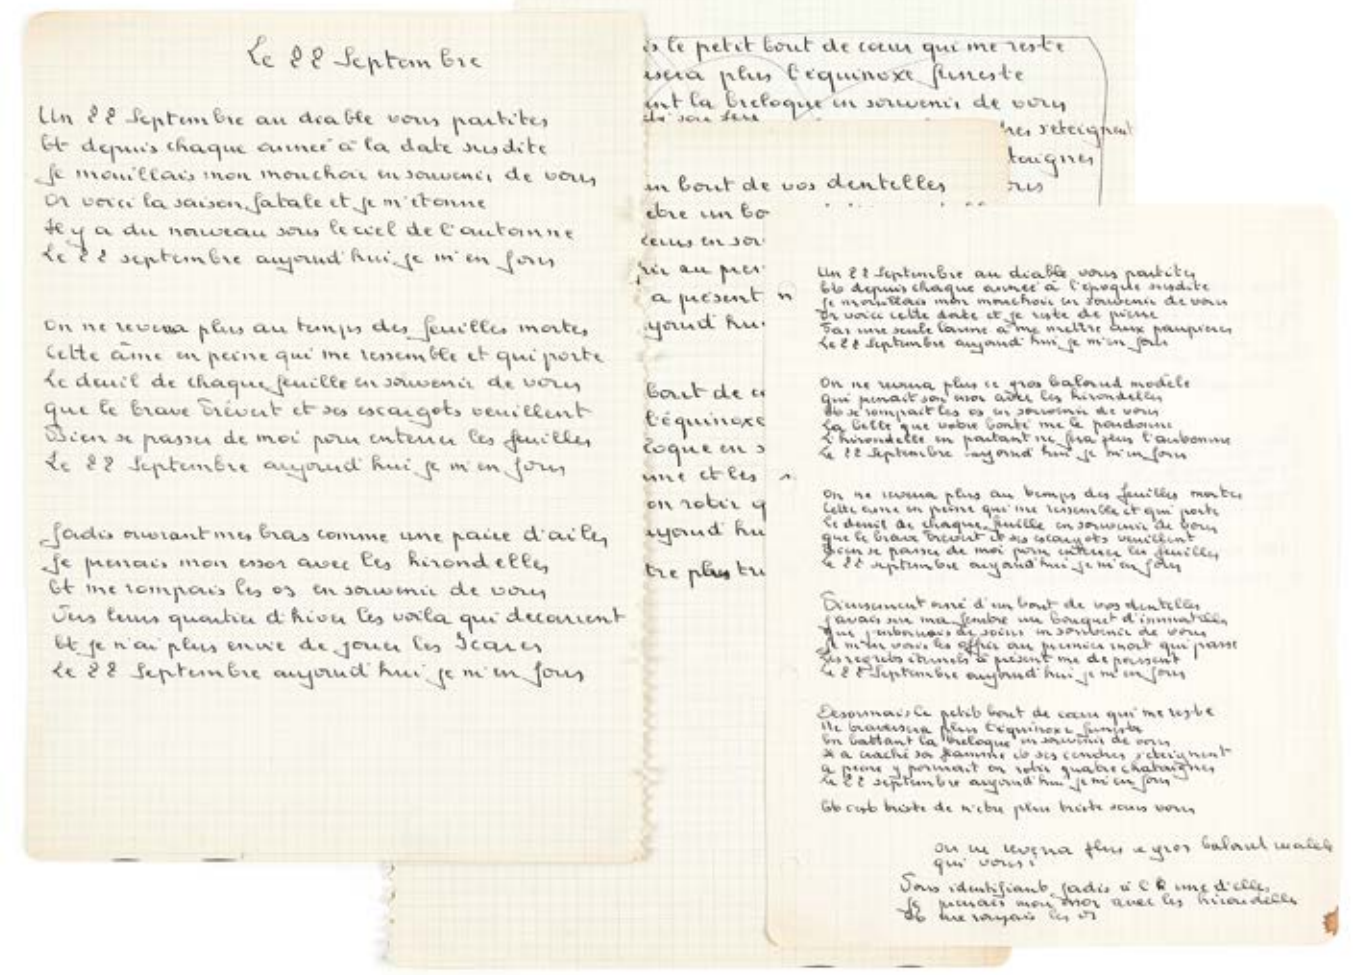 Le 22 Septembre
Un 22 Septembre au diable vous partites
Et depuis chaque année à la date susdite
Je mouillais mon mouchoir en souvenir de vous
Or voici la saison fatale et je m'étonne
Il y a du nouveau sous le ciel de l'automne
Le 22 septembre aujourd'hui je m'en fous
On ne reverra plus au temps des feuilles mortes
Cette âme en peine qui me ressemble et qui porte
Le deuil de chaque feuille en souvenir de vous
que le brave Prévert et ses escargots veuillent
Bien se passer de moi pour enterrer les feuilles
Le 22 Septembre aujourd'hui je m'en fous
Jadis ouvrant mes bras comme une paire d'ailes
Je prenais mon essor avec les hirondelles
Et me rompais les os en souvenir de vous
Vers leurs quartier d'hiver les voila qui décarrent
Et je n'ai plus envie de jouer les Icares
Le 22 Septembre aujourd'hui je m'en fous
le petit bout de cœur qui me reste
plus l'équinoxe funeste
la breloque en souvenir de vous
s'eteignent
bout de vos dentelles
un bo
en sou
au prem
a présent
bout de c
l'équinoxe
en s
et les
rotir q
plus tri
Un 22 Septembre au diable vous partites
Et depuis chaque année à l'époque susdite
Je mouillais mon mouchoir en souvenir de vous
Or voici cette date et je reste de pierre
Pas une seule larme à me mettre aux paupières
Le 22 Septembre aujourd'hui je m'en fous
On ne reverra plus ce gros balourd modèle
qui prenait son essor avec les hirondelles
Et se rompait les os en souvenir de vous
La belle que votre bonté me le pardonne
L'hirondelle en partant ne fera plus l'automne
Le 22 Septembre aujourd'hui je m'en fous
On ne reverra plus au temps des feuilles mortes
Cette ame en peine qui me ressemble et qui porte
Le deuil de chaque feuille en souvenir de vous
que le brave Prévert et ses escargots veuillent
Bien se passer de moi pour enterrer les feuilles
Le 22 septembre aujourd'hui je m'en fous
Pieusement orné d'un bout de vos dentelles
J'avais sur ma fenêtre un bouquet d'immortelles
Que j'entourais de soins en souvenir de vous
Je m'en vais les offrir au premier mort qui passe
Les regrets éternels à présent me dépassent
Le 22 Septembre aujourd'hui je m'en fous
Desormais le petit bout de cœur qui me reste
Ne traversera plus l'équinoxe funeste
En battant la breloque en souvenir de vous
Il a craché sa flamme et ses cendres s'eteignent
a peine y pourrait on rotir quatre chataignes
Le 22 septembre aujourd'hui je m'en fous
Et c'est triste de n'etre plus triste sans vous
On ne reverra plus ce gros balourd
qui
Vous identifiant jadis à l'une d'elles
Je prenais mon essor avec les hirondelles
Et me rompais les os